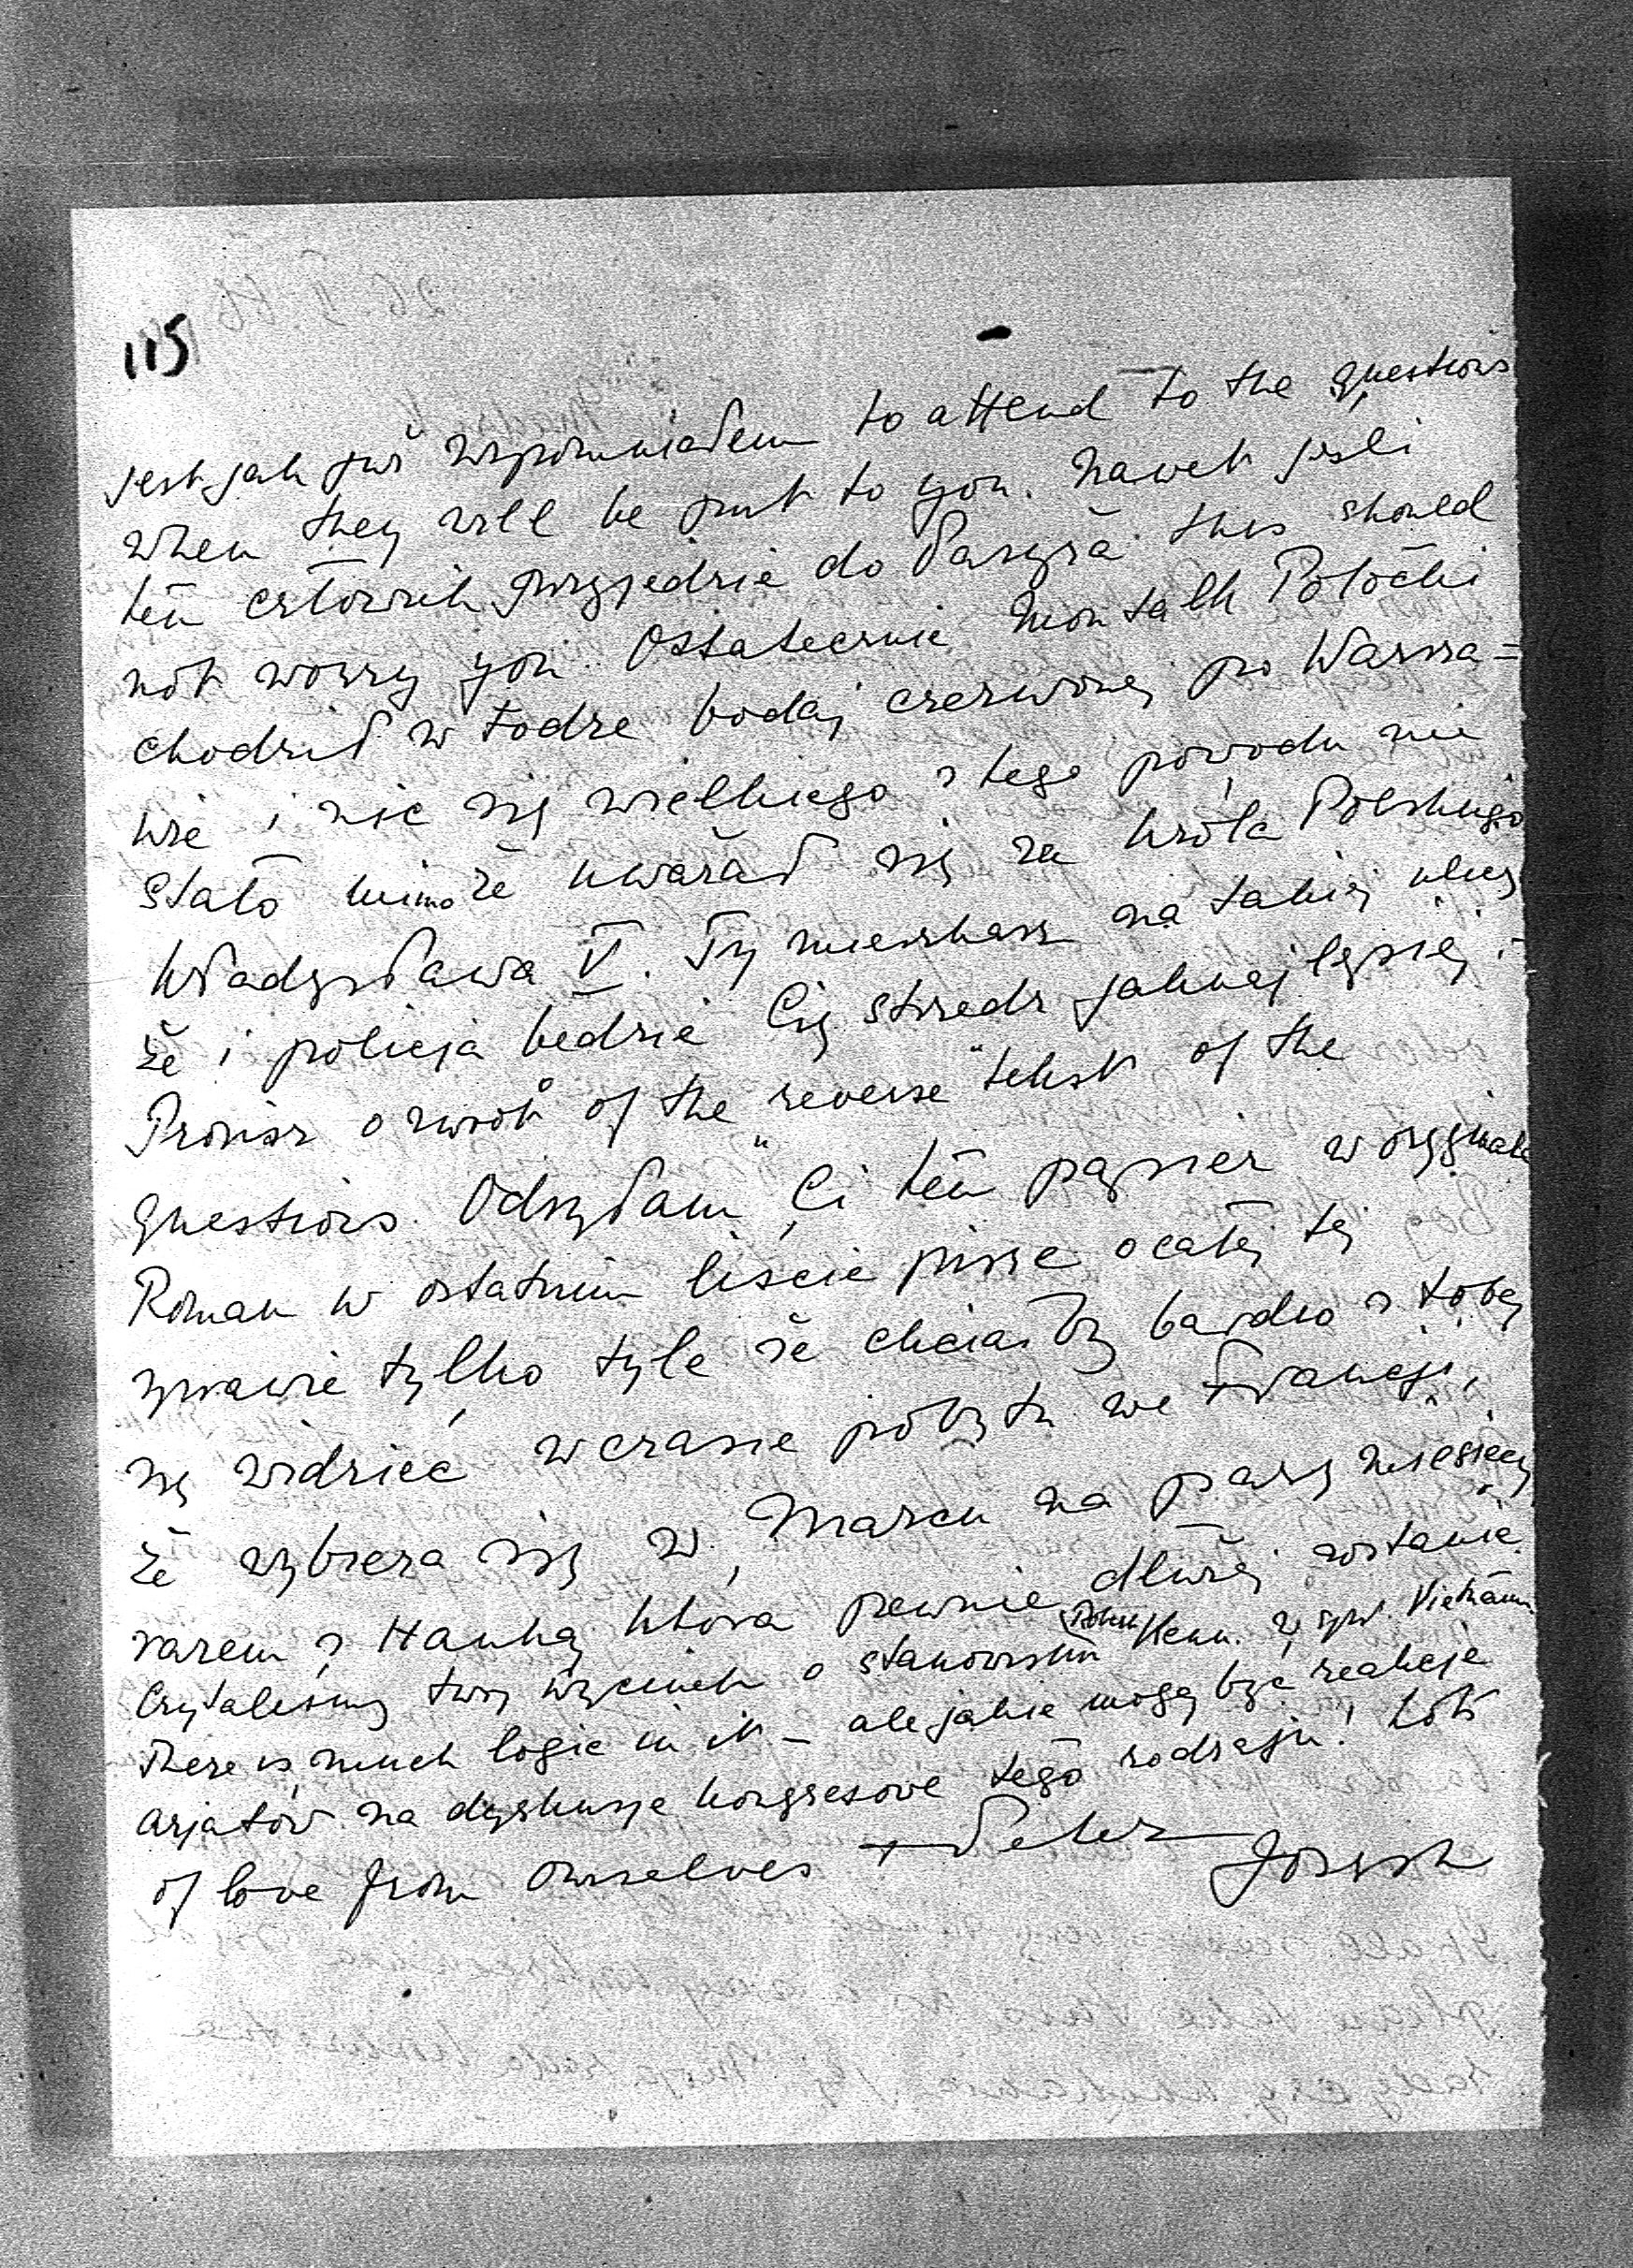 115
jest jak już wspomniałem to attend to the questions
when they will be put to you. Nawet jeśli
ten człowiek przyjedzie do Paryża this should
not worry you. Ostatecznie Montalk Potocki
chodził w todze bodaj czerwonej po Warsza=
wie i nic się wielkiego z tego powodu nie
stało mimo że uważał się za króla Polskiego
Władysława V. Ty mieszkasz na takiej ulicy
że i policja bedzie Cię strzedz jaknajlepiej.
Proszę o zwrot of the reverse "tekst" of the
questions. Odsyłam Ci ten papier w oryginale
Roman w ostatnim liście pisze o całej tej
sprawie tylko tyle że chciałby bardzo z tobą
się widzieć w czasie pobytu we Francji,
że wybiera się w Marcu na parę miesięcy
razem z Hanką która pewnie dłużej zostanie.
Czytaliśmy twój wycinek o stanowisku Robert Kenn. w spr. Vietnam.
There is much logic in it – ale jakie mogą być reakcje
azjatów na dyskusje kongresowe tego rodzaju! Lots
of love from ourselves + Peter
Joseph